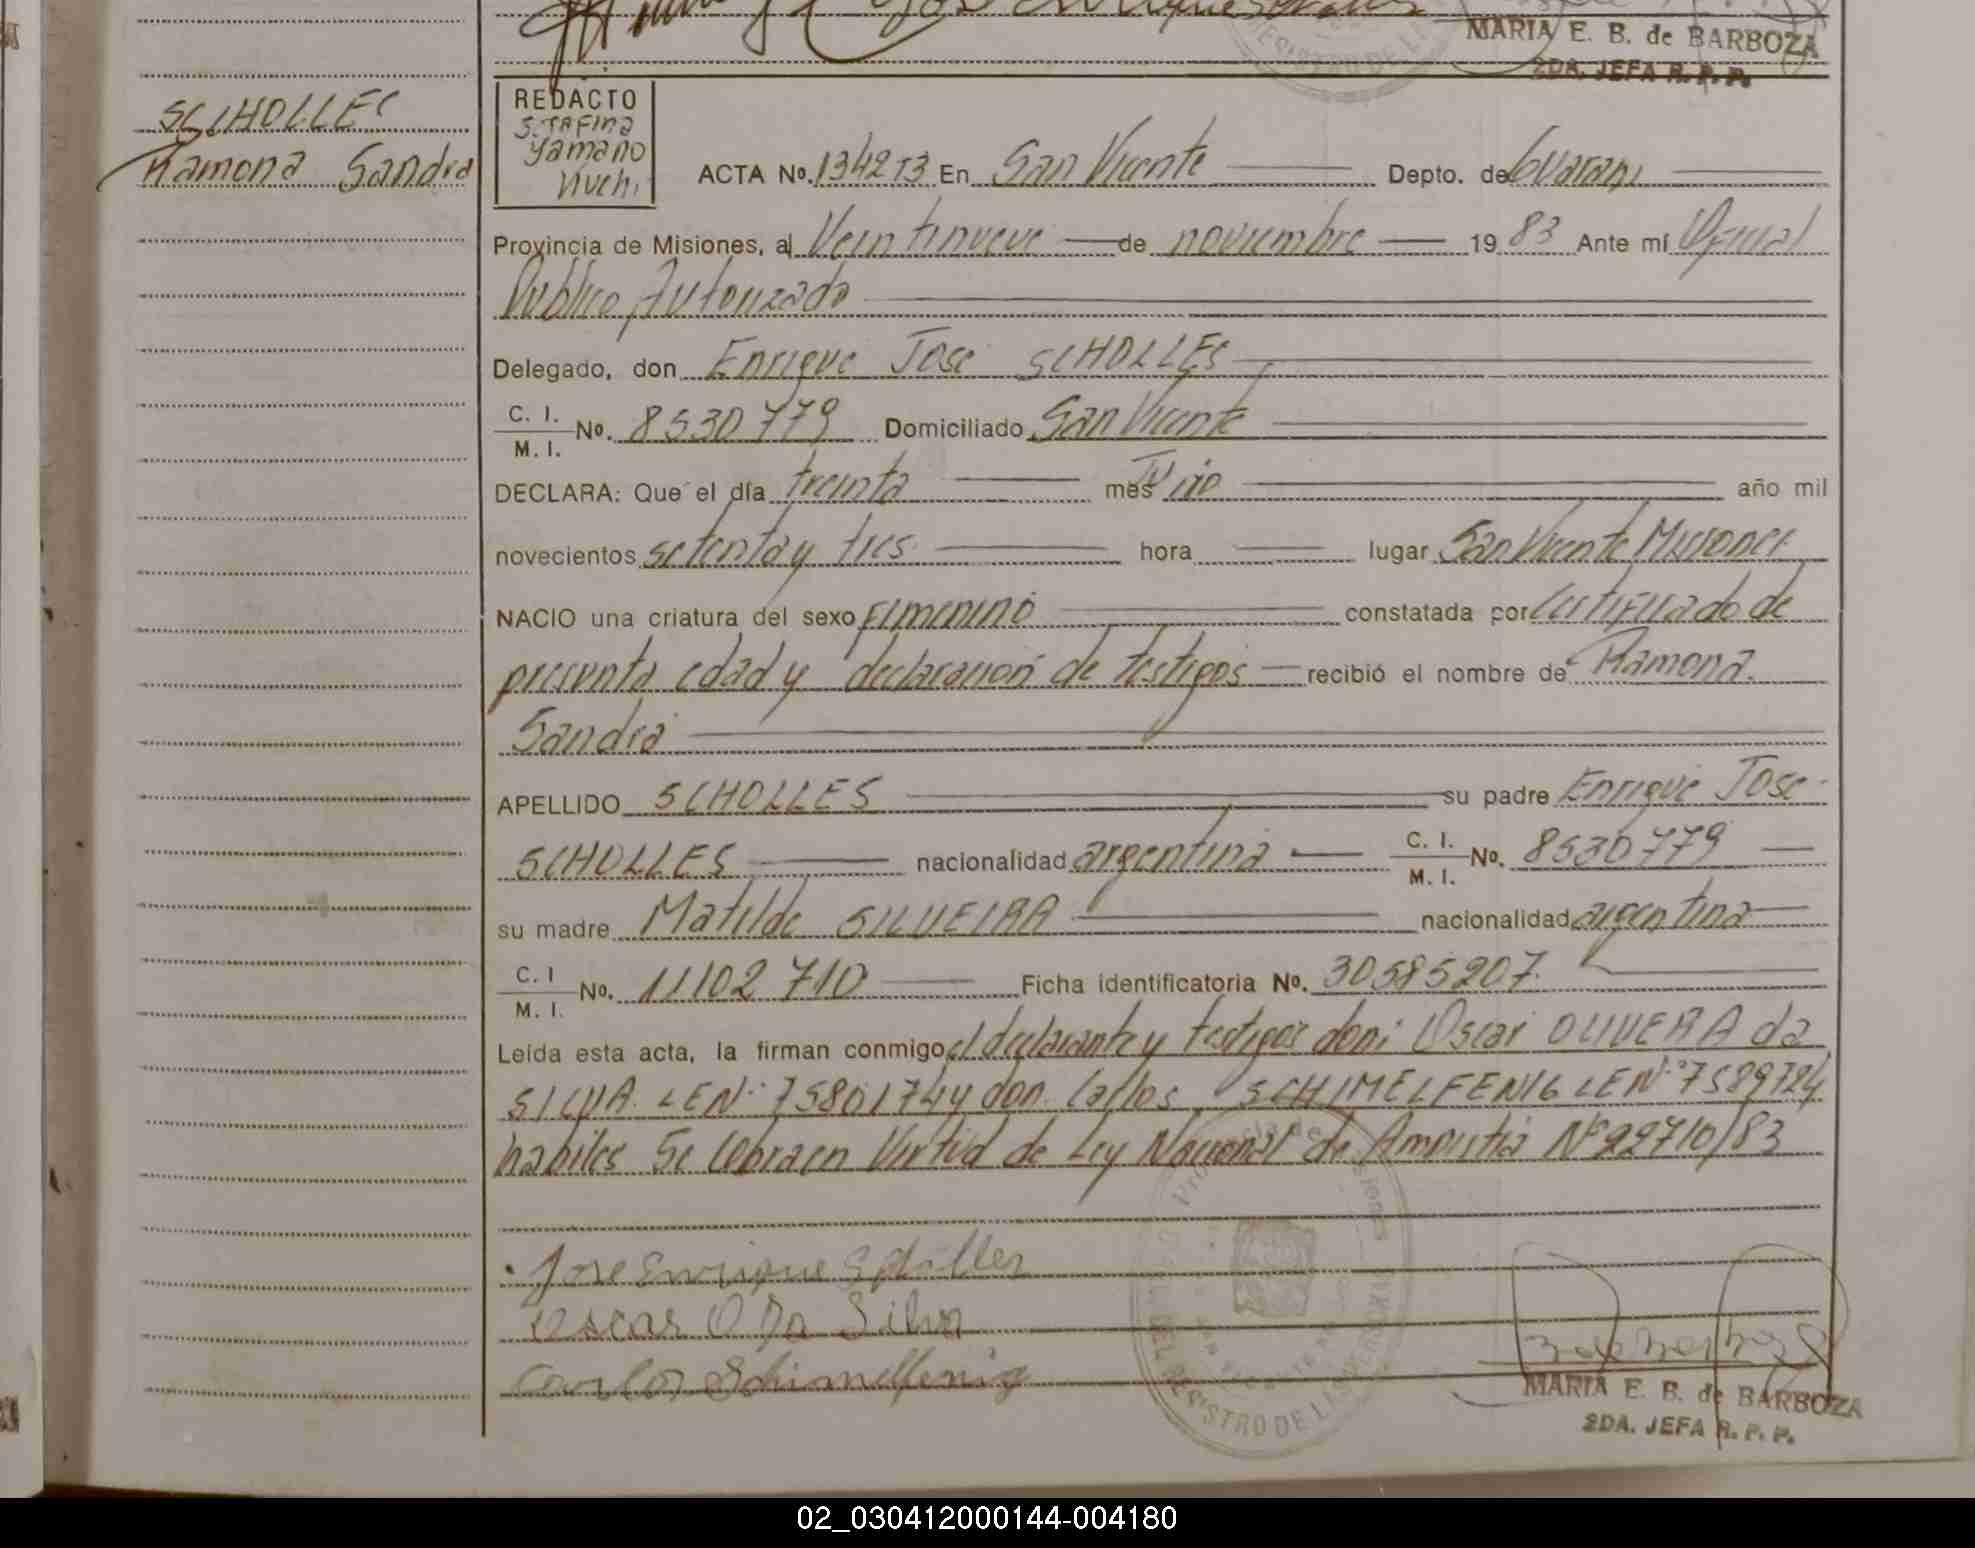 MARIA E. B. de BARBOZA
2DA. JEFA R. P. P.
SCHOLLES
Ramona Sandra
REDACTO
Yamano
ACTA No. En San Vicente Depto. de Guarani
Provincia de Misiones, al Veintinueve de noviembre 19 83 Ante mí Oficial
Publico Autorizado
Delegado, don Enrique Jose SCHOLLES
C. I.
M. I. No. 8530779 Domiciliado San Vicente
DECLARA: Que el día treinta mes año mil
novecientos setenta y tres hora lugar San Vicente Misiones
NACIO una criatura del sexo Femenino constatada por Certificado de
presunta edad y declaración de testigos recibió el nombre de Ramona
Sandra
APELLIDO SCHOLLES su padre Enrique Jose
SCHOLLES nacionalidad argentina C. I.
M. I. No. 8530779
su madre Matilde SILVEIRA nacionalidad argentina
C. I
M. I. No. 11102710 Ficha identificatoria No. 30585207
Leída esta acta, la firman conmigo el declarante y testigos don: Oscar OLIVERA da
SILVA LEN: 7580174 y don Carlos SCHIMELFENIG LEN° 7589724
habiles Se labra en Virtud de Ley Nacional de Amnistia N° 22710/83
Jose Enrique Scholles
Oscar O Da Silva
Carlos Schimelfenig
MARIA E. B. de BARBOZA
2DA. JEFA R. P. P.
02_030412000144-004180